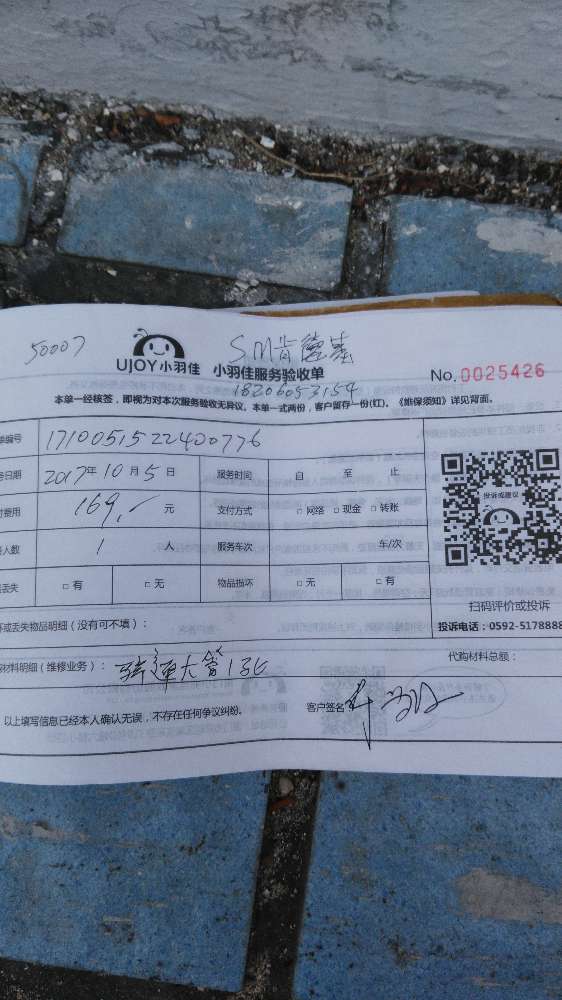 50007
SM肯德基
UJOY小羽佳 小羽佳服务验收单
No.0025426
18206053154
本单一经核签，即视为对本次服务验收无异议。本单一式两份，客户留存一份(红)。《维保须知》详见背面。
单编号 1710051522400776
务日期 2017年10月5日 服务时间 自 至 止
付费用 169.- 元 支付方式 □ 网络 □ 现金 □ 转账
人数 1 人 服务车次 车/次
丢失 □ 有 □ 无 物品损坏 □ 无 □ 有
投诉或建议
扫码评价或投诉
投诉电话：0592-5178888
坏或丢失物品明细（没有可不填）：
材料明细（维修业务）：
代购材料总额：
以上填写信息已经本人确认无误，不存在任何争议纠纷。
客户签名